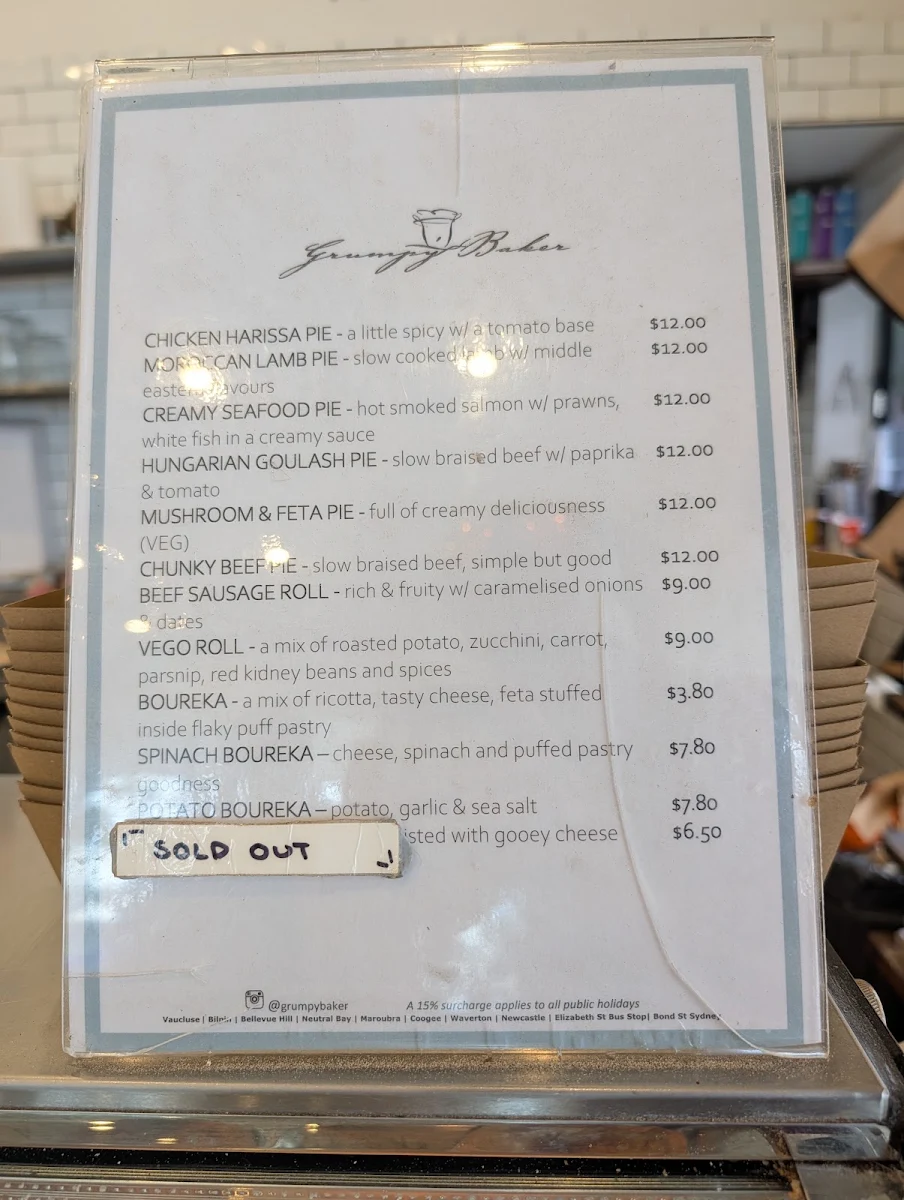 Grumpy Baker
CHICKEN HARISSA PIE - a little spicy w/ a tomato base $12.00
MOROCCAN LAMB PIE - slow cooked lamb w/ middle $12.00
eastern flavours
CREAMY SEAFOOD PIE - hot smoked salmon w/ prawns, $12.00
white fish in a creamy sauce
HUNGARIAN GOULASH PIE - slow braised beef w/ paprika $12.00
& tomato
MUSHROOM & FETA PIE - full of creamy deliciousness $12.00
(VEG)
CHUNKY BEEF PIE - slow braised beef, simple but good $12.00
BEEF SAUSAGE ROLL - rich & fruity w/ caramelised onions $9.00
& dates
VEGO ROLL - a mix of roasted potato, zucchini, carrot, $9.00
parsnip, red kidney beans and spices
BOUREKA - a mix of ricotta, tasty cheese, feta stuffed $3.80
inside flaky puff pastry
SPINACH BOUREKA – cheese, spinach and puffed pastry $7.80
goodness
POTATO BOUREKA – potato, garlic & sea salt $7.80
SOLD OUT isted with gooey cheese $6.50
@grumpybaker A 15% surcharge applies to all public holidays
Vaucluse | Bilpin | Bellevue Hill | Neutral Bay | Maroubra | Coogee | Waverton | Newcastle | Elizabeth St Bus Stop| Bond St Sydney